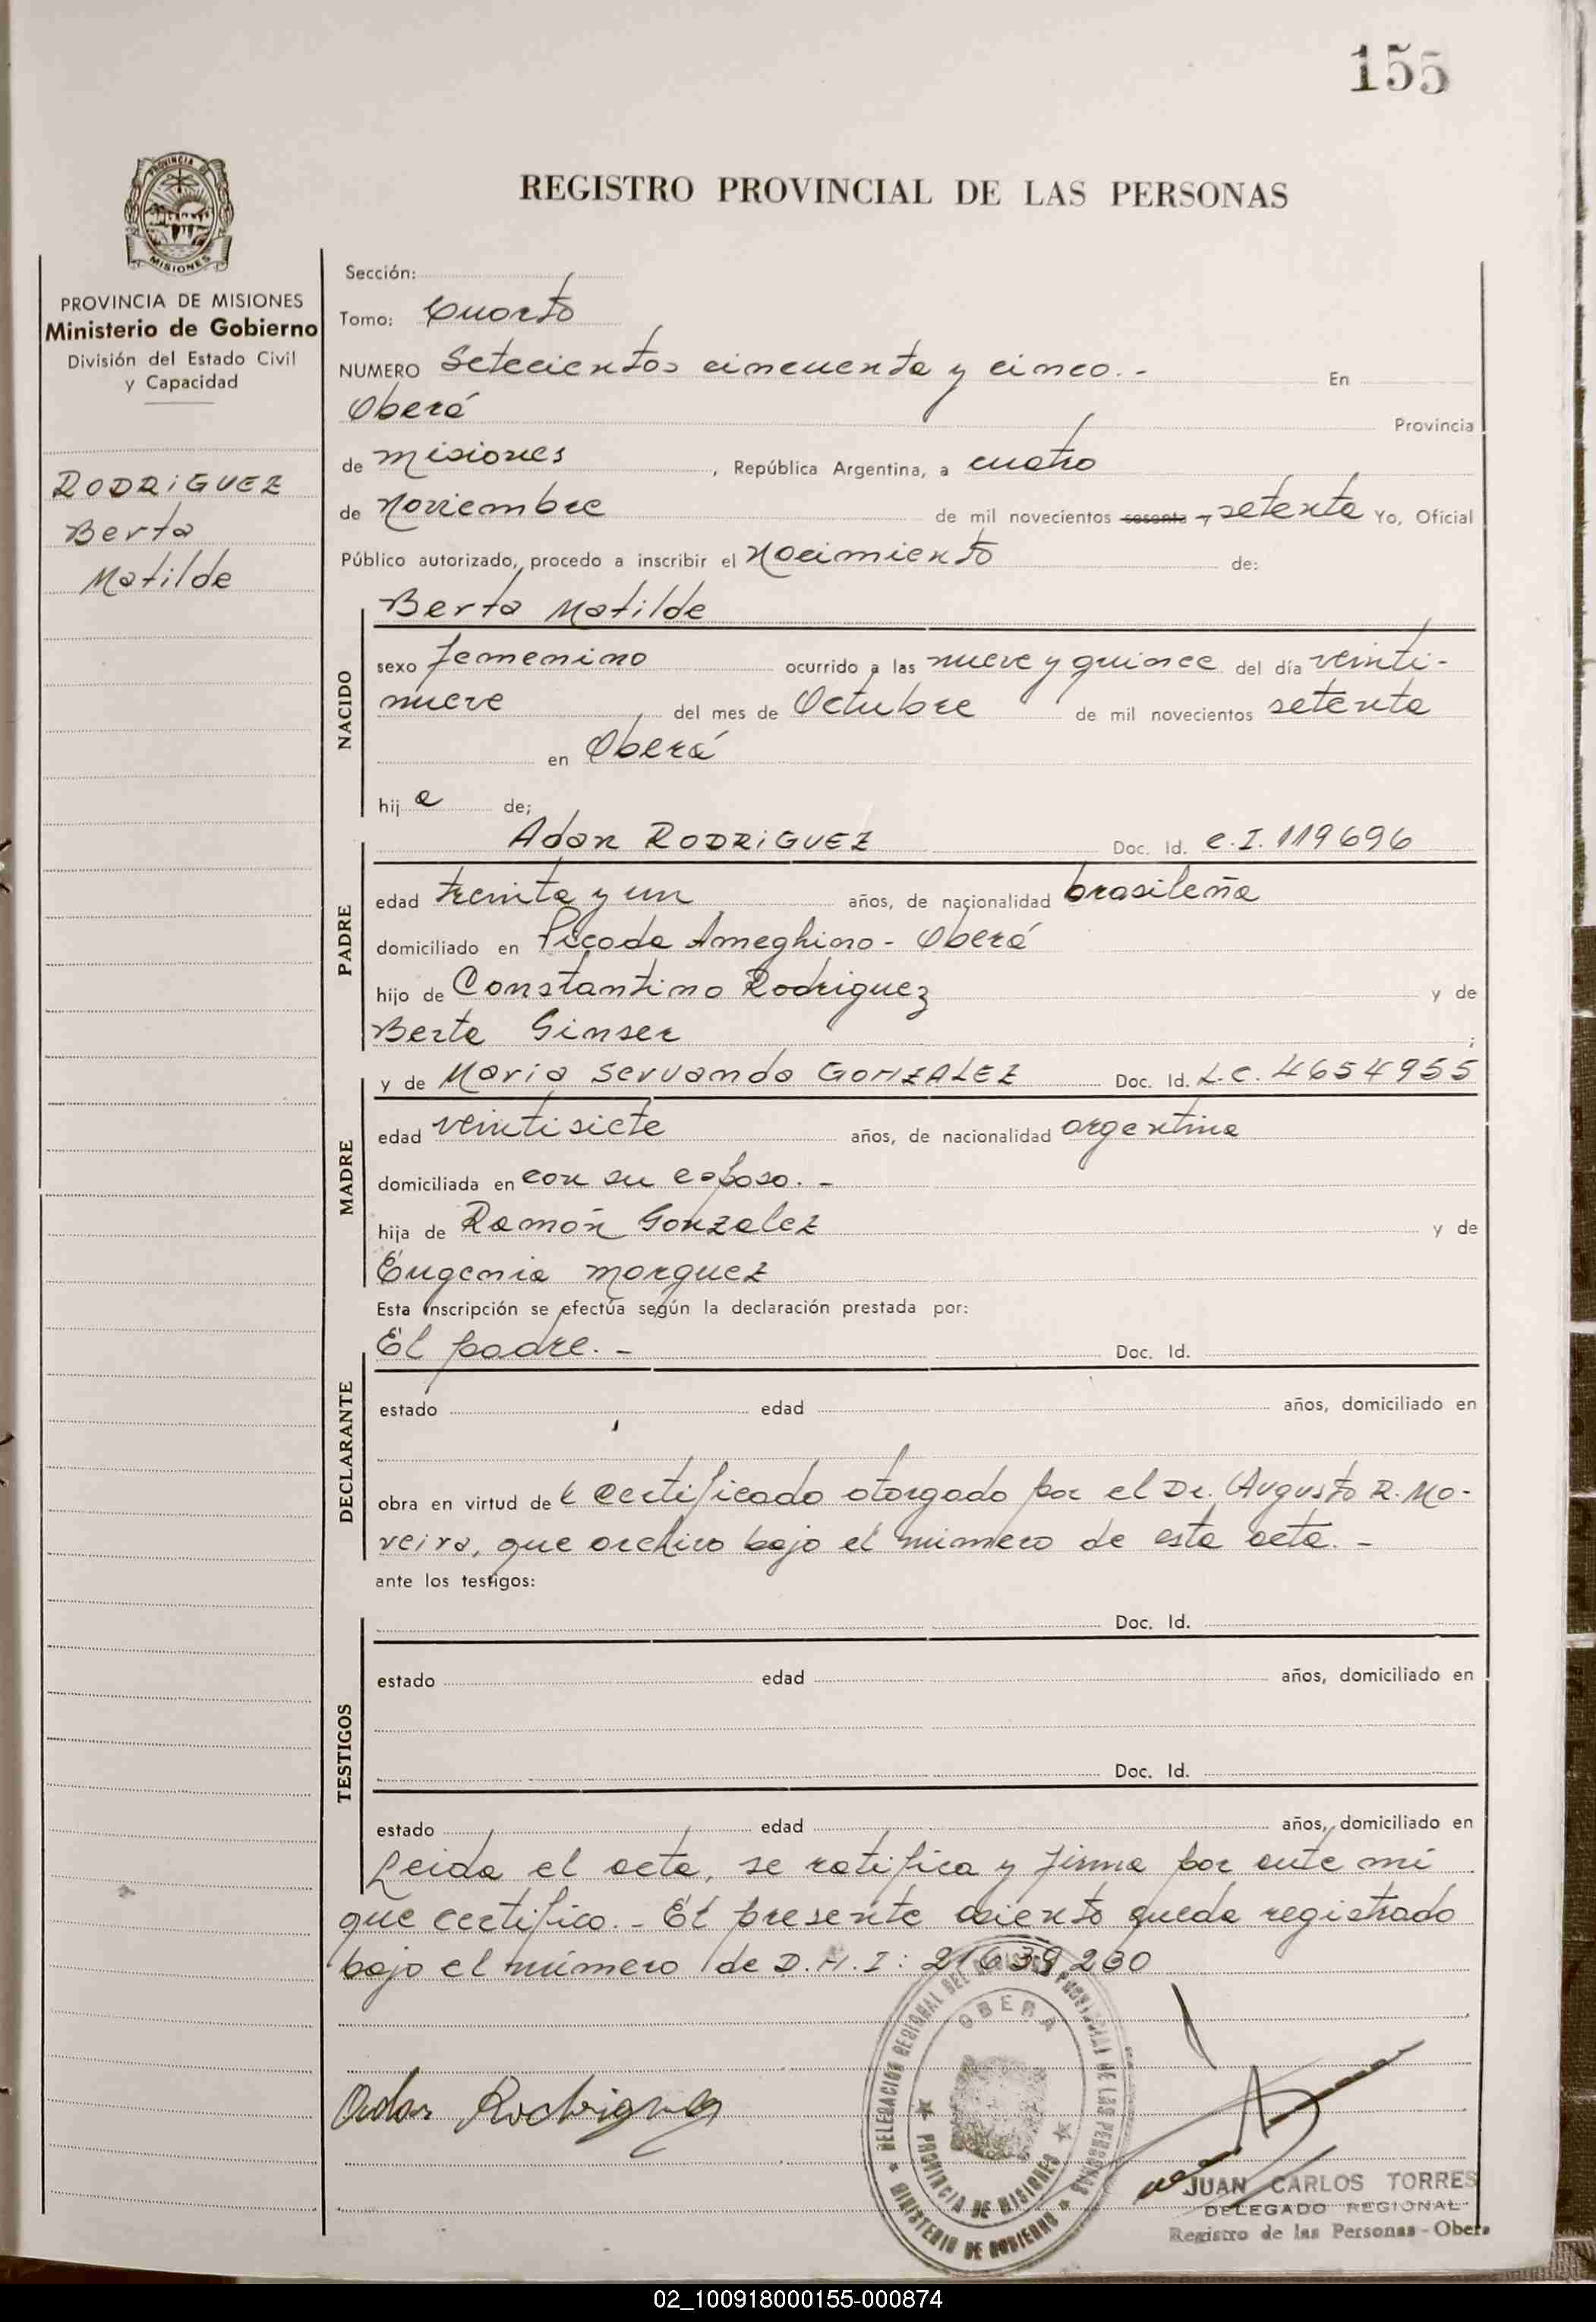 155
PROVINCIA DE
MISIONES
REGISTRO PROVINCIAL DE LAS PERSONAS
PROVINCIA DE MISIONES
Ministerio de Gobierno
División del Estado Civil
y Capacidad
RODRIGUEZ
Berta
Matilde
Sección:
Tomo: Cuarto
NUMERO Setecientos cincuenta y cinco.- En
Oberá Provincia
de Misiones, República Argentina, a cuatro
de Noviembre de mil novecientos sesenta y setenta Yo, Oficial
Público autorizado, procedo a inscribir el Nacimiento de:
Berta Matilde
NACIDO
sexo femenino ocurrido a las nueve y quince del día veinti-
nueve del mes de Octubre de mil novecientos setenta
en Oberá
hij a de;
Adan RODRIGUEZ Doc. Id. C.I. 119696
PADRE
edad treinta y un años, de nacionalidad brasileña
domiciliado en Picada Ameghino - Oberá
hijo de Constantino Rodriguez y de
Berta Ginser;
y de Maria Servanda GONZALEZ Doc. Id. L.C. 4654955
MADRE
edad veintisiete años, de nacionalidad argentina
domiciliada en con su esposo.-
hija de Ramón Gonzalez y de
Eugenia Marquez
Esta inscripción se efectúa según la declaración prestada por:
El padre.- Doc. Id.
DECLARANTE
estado edad años, domiciliado en
obra en virtud de l Certificado otorgado por el Dr. Augusto R. Mo-
reira, que archivo bajo el número de esta acta.-
ante los testigos:
Doc. Id.
TESTIGOS
estado edad años, domiciliado en
Doc. Id.
estado edad años, domiciliado en
Leida el acta, se ratifica y firma por ante mi
que certifico.- El presente asiento queda registrado
bajo el número de D.N.I: 21639230
Adan Rodriguez
DELEGACION REGIONAL DEL REGISTRO PROVINCIAL DE LAS PERSONAS
OBERA
PROVINCIA DE MISIONES
MINISTERIO DE GOBIERNO
JUAN CARLOS TORRES
DELEGADO REGIONAL
Registro de las Personas - Oberá
02_100918000155-000874